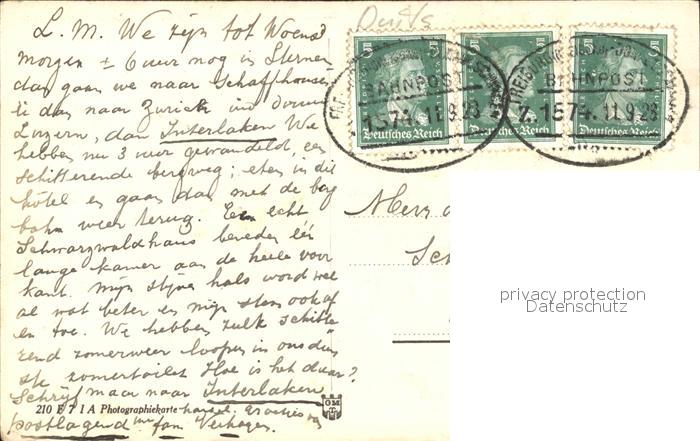 L. M. We zijn tot Woensd
morgen ± 6 uur nog in Sterne
dan gaan we naar Schaffhouse
dan naar Zurich en
Luzern, dan Interlaken We
hebben nu 3 uur gewandeld, een
schitterende bergweg; eten in dit
hôtel en gaan dan met de berg
bahn weer terug. Een echt
Schwarzwaldhaus beneden één
lange kamer aan de heele voor
kant. Mijn stijve hals word wel
al wat beter en mijn stem ook af
en toe. We hebben zulk schitte
rend zomerweer loopen in ons
ste zomertoilet Hoe is het daar?
Schrijf maar naar Interlaken
postlagernd fam Verhagen.
groetjes
BAHNPOST
Z. 1574. 11.9.28
BAHNPOST
Z. 1574. 11.9.28
5
5
5
Deutsches Reich
Deutsches Reich
Deutsches Reich
privacy protection
Datenschutz
210 F 7 1 A Photographiekarte